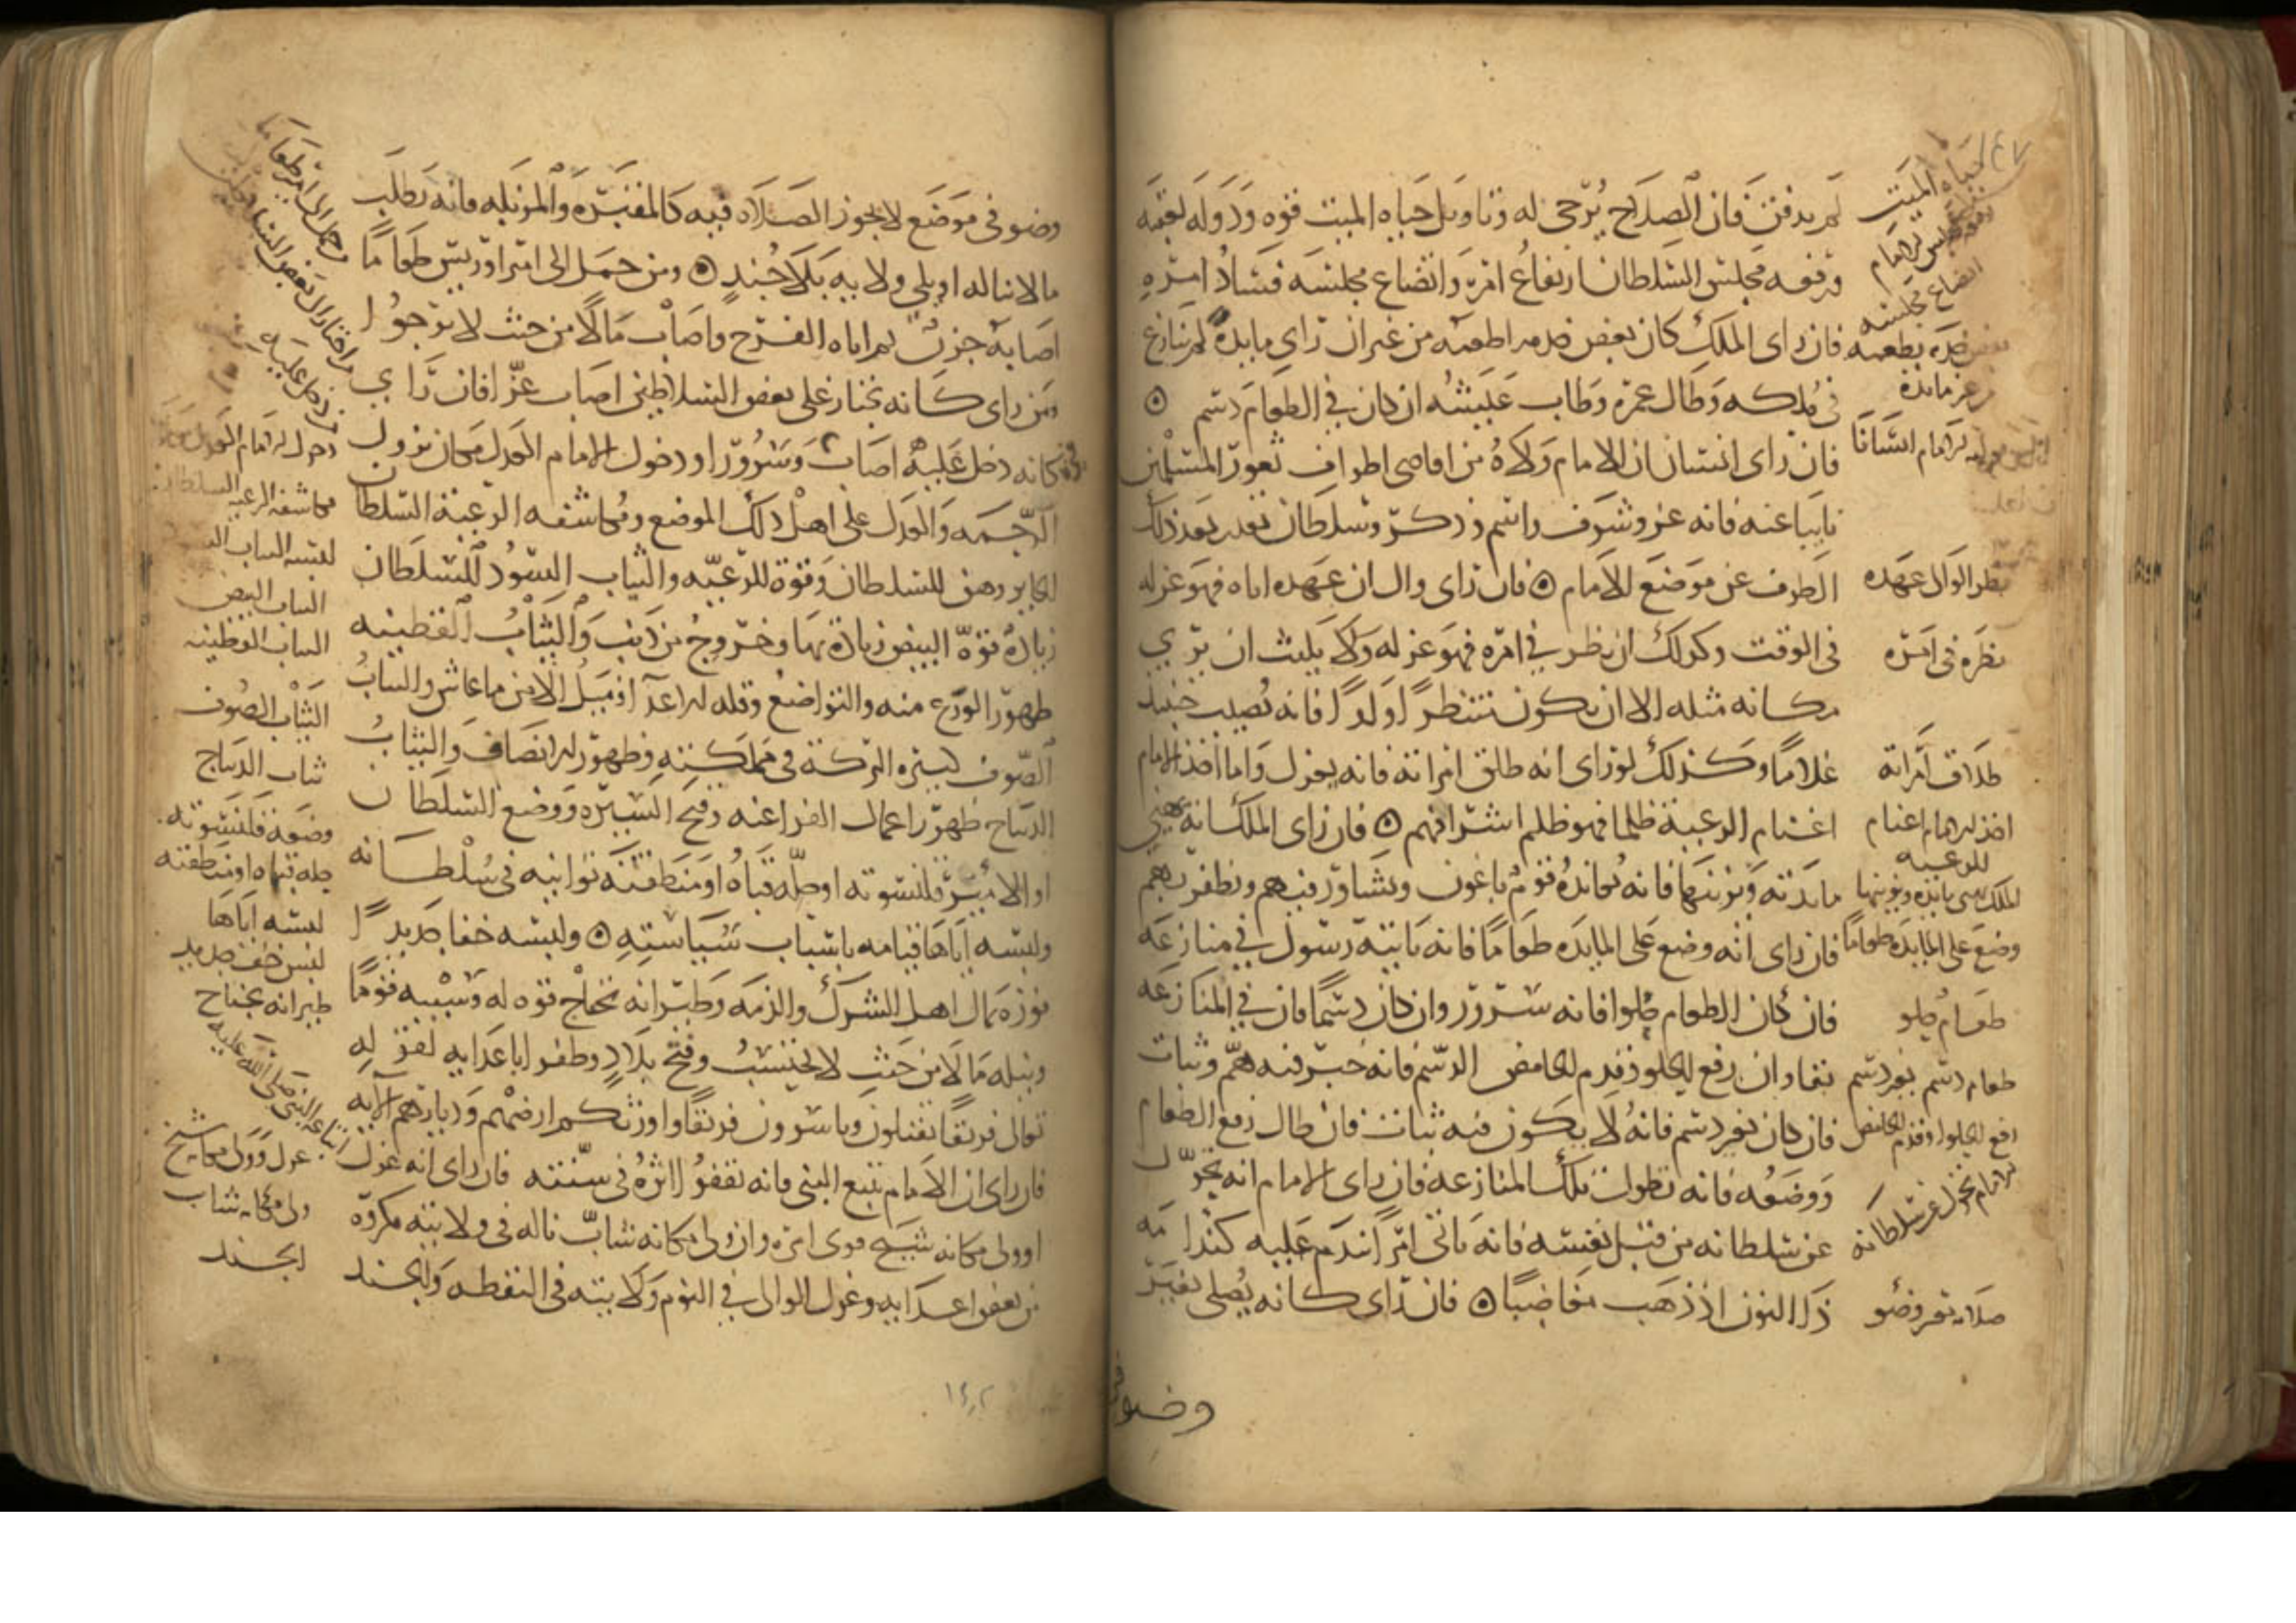 لم يدفن فان الصلاح يرجى له وتاويل حياه الميت قوه ودوله بعقبه
ورفعه مجلس السلطان ارتفاع امره واتضاع مجلسه فساد امره
فان راى الملك كان بعض خدمه اطعمه من غير ان راى مايدة لم ينازع
فى ملكه وطال عمره وطاب عيشه ان كان في الطعام دسم ۞
فان راى انسان ان الامام ولاه من اقاصى اطراف ثغور المسلمين
نايبا عنه فانه عز وشرف واسم وذكر وسلطان بقدر بعد ذلك
الطرف عن موضع الامام ۞ فان راى وال ان عهده اتاه فهو عزله
فى الوقت وكذلك ان نظر في امره فهو عزله ولا يلبث ان يرى
مكانه مثله الا ان يكون منتظرا ولدا فانه يصيب حينئذ
غلاما وكذلك لو راى انه طلق امراته فانه يعزل واما اخذ الامام
اغنام الرعية ظلما فهو ظلم اشرافهم ۞ فان راى الملك انه يهيئ
مايدته ويزينها فانه يعانده قوم باغون ويشاور فيهم ويظفر بهم
فان راى انه وضع على المايده طعاما فانه ياتيه رسول في منازعه
فان كان الطعام حلوا فانه سرور وان كان دسما فان في المنازعه
بقا وان رفع الحلو وقدم الحامض الدسم فانه خير فيه هم وثبات
فان كان بغير دسم فانه لا يكون فيه ثبات فان طال رفع الطعام
ووضعه فانه تطول تلك المنازعه فان راى الامام انه تحول
عن سلطانه من قبل نفسه فانه ياتى امرا يندم عليه كندامه
ذا النون اذ ذهب مغاضبا ۞ فان راى كانه يصلى بغير
حياه الميت
اتضاع مجلسه
بعض خدمه يطعمه
من غير مايدة
نظر الوالى عهده
نظره فى امره
طلاق امراته
اخذ الامام اغنام
للرعيه
وضع على المايده طعاما
طعام حلو
طعام دسم بغير دسم
رفع الحلوا وقدم الحامض
الامام تحول عن سلطانه
صلاته بغير وضو
وضو فى
وضو فى موضع لا يجوز الصلاه فيه كالمقبره والمزبله فانه يطلب
ما لا يناله او يلى ولايه بلا جند ۞ ومن حمل الى امير او رييس طعاما
اصابه حزن ثم اتاه الفرج واصاب مالا من حيث لا يرجوا
ومن راى كانه يختار على بعض السلاطين اصاب عزا فان راى
كانه دخل عليه اصاب وسرورا ودخول الامام العدل مكان نزول
الرحمه والعدل على اهل ذلك الموضع ومكاشفه الرعية السلطان
الجاير وهن للسلطان وقوة للرعيه والثياب السود للسلطان
زيادة قوة البيض زيادة بها وخروج من ذنب والثياب القطنيه
ظهور الورع منه والتواضع وقله الاعدا ونيل الامن ما عاش والثياب
الصوف كثيره البركة فى مملكته وظهور الانصاف والثياب
الديباج ظهور اعمال الفراعنه وقبح السيره ووضع السلطان
او الامير قلنسوته او حله قباه او منطقته توانيه فى سلطانه
ولبسه اياها قيامه باسباب سياسته ۞ ولبسه خفا جديدا
فوزه بمال اهل الشرك والذمه وطيرانه بجناح قوه له وسبيه قوما
ونيله مالا من حيث لا يحتسب وفتح بلاد وظفر باعدايه لقوله
تعالى فريقا تقتلون وتاسرون فريقا واورثكم ارضهم وديارهم الايه
فان راى ان الامام يتبع النبى فانه يقفوا اثره فى سنته فان راى انه عزل
او ولى مكانه شيخ قوى امره وان ولى مكانه شاب ناله فى ولايته مكروه
من بعض اعدايه وعزل الوالى في النوم ولايته فى اليقظه والجند
دخول الامام العدل
مكاشفه الرعيه السلطان
لبسه الثياب السود
الثياب البيض
الثياب القطنيه
الثياب الصوف
ثياب الديباج
وضعه قلنسوته
حله قباه او منطقته
لبسه اياها
لبس خف جديد
طيرانه بجناح
اتباعه النبى صلى الله عليه
عزل وولى مكانه شيخ
ولى مكانه شاب
الجند